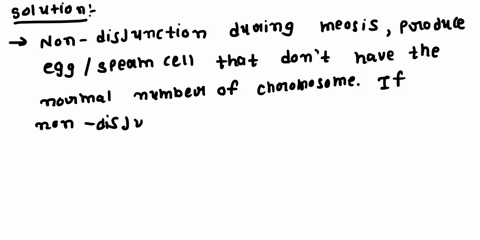 Solution:-
→ Non-disjunction during meosis, produce
egg/sperm cell that don't have the
normal number of choromosome. If
non-disju